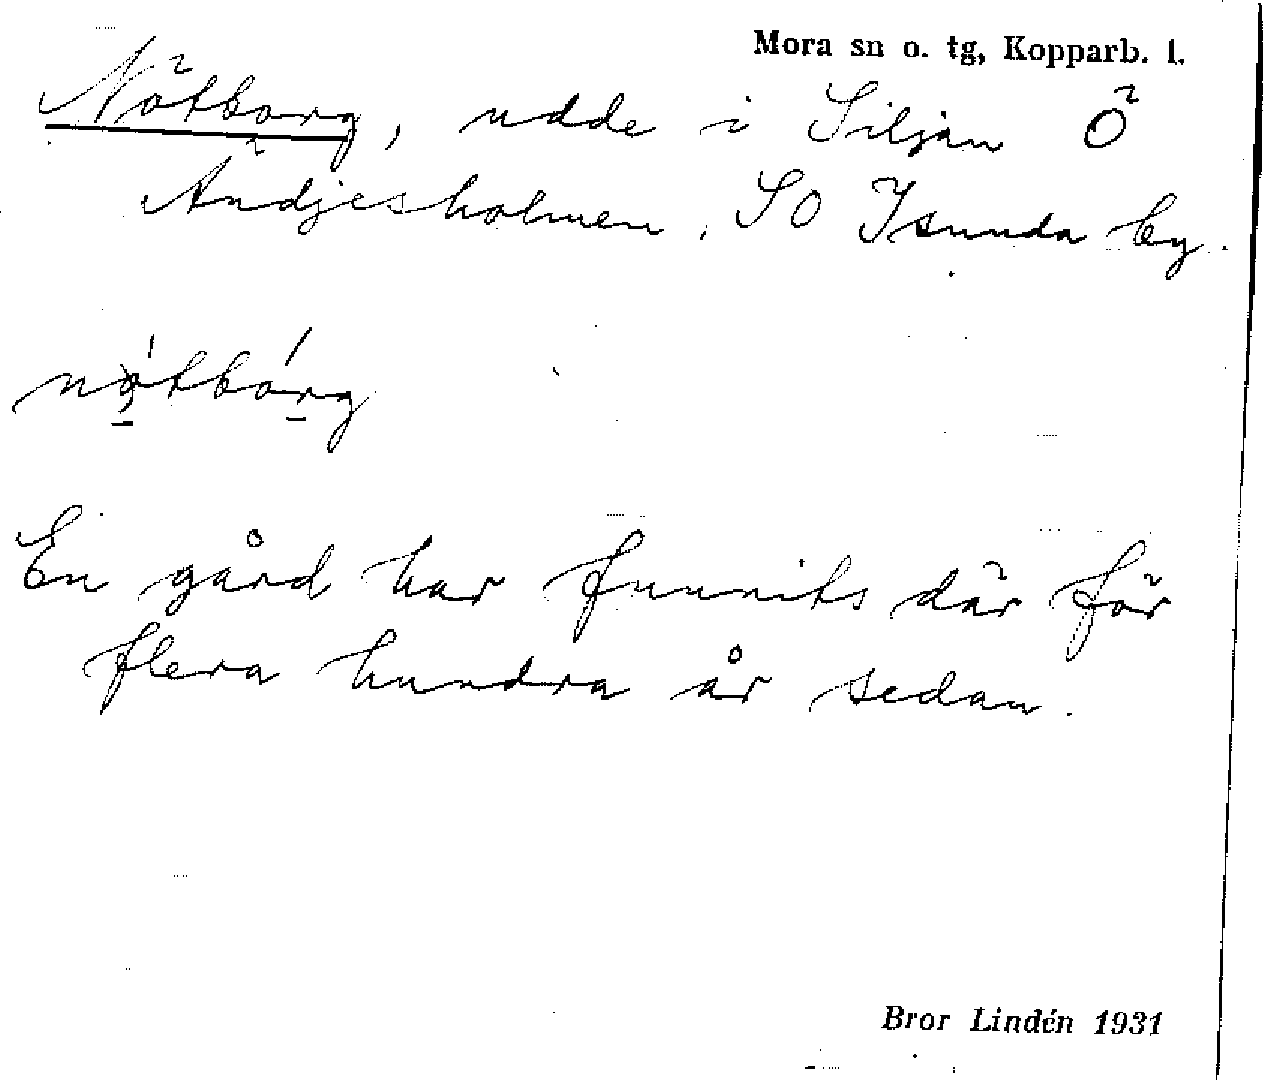 Mora sn o. tg, Kopparb. l.
Nötborg, udde i Siljan Ö
Ändjesholmen, SO Isunda by.
nǫ́tbórg
En gård har funnits där för
flera hundra år sedan.
Bror Lindén 1931